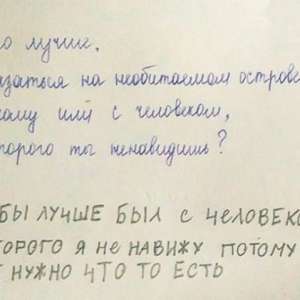 о лучше,
азаться на необитаемом острове
ому или с человеком,
торого ты ненавидишь?
БЫ ЛУЧШЕ БЫЛ С ЧЕЛОВЕКО
ТОРОГО Я НЕ НАВИЖУ ПОТОМУ
НУЖНО ЧТО ТО ЕСТЬ